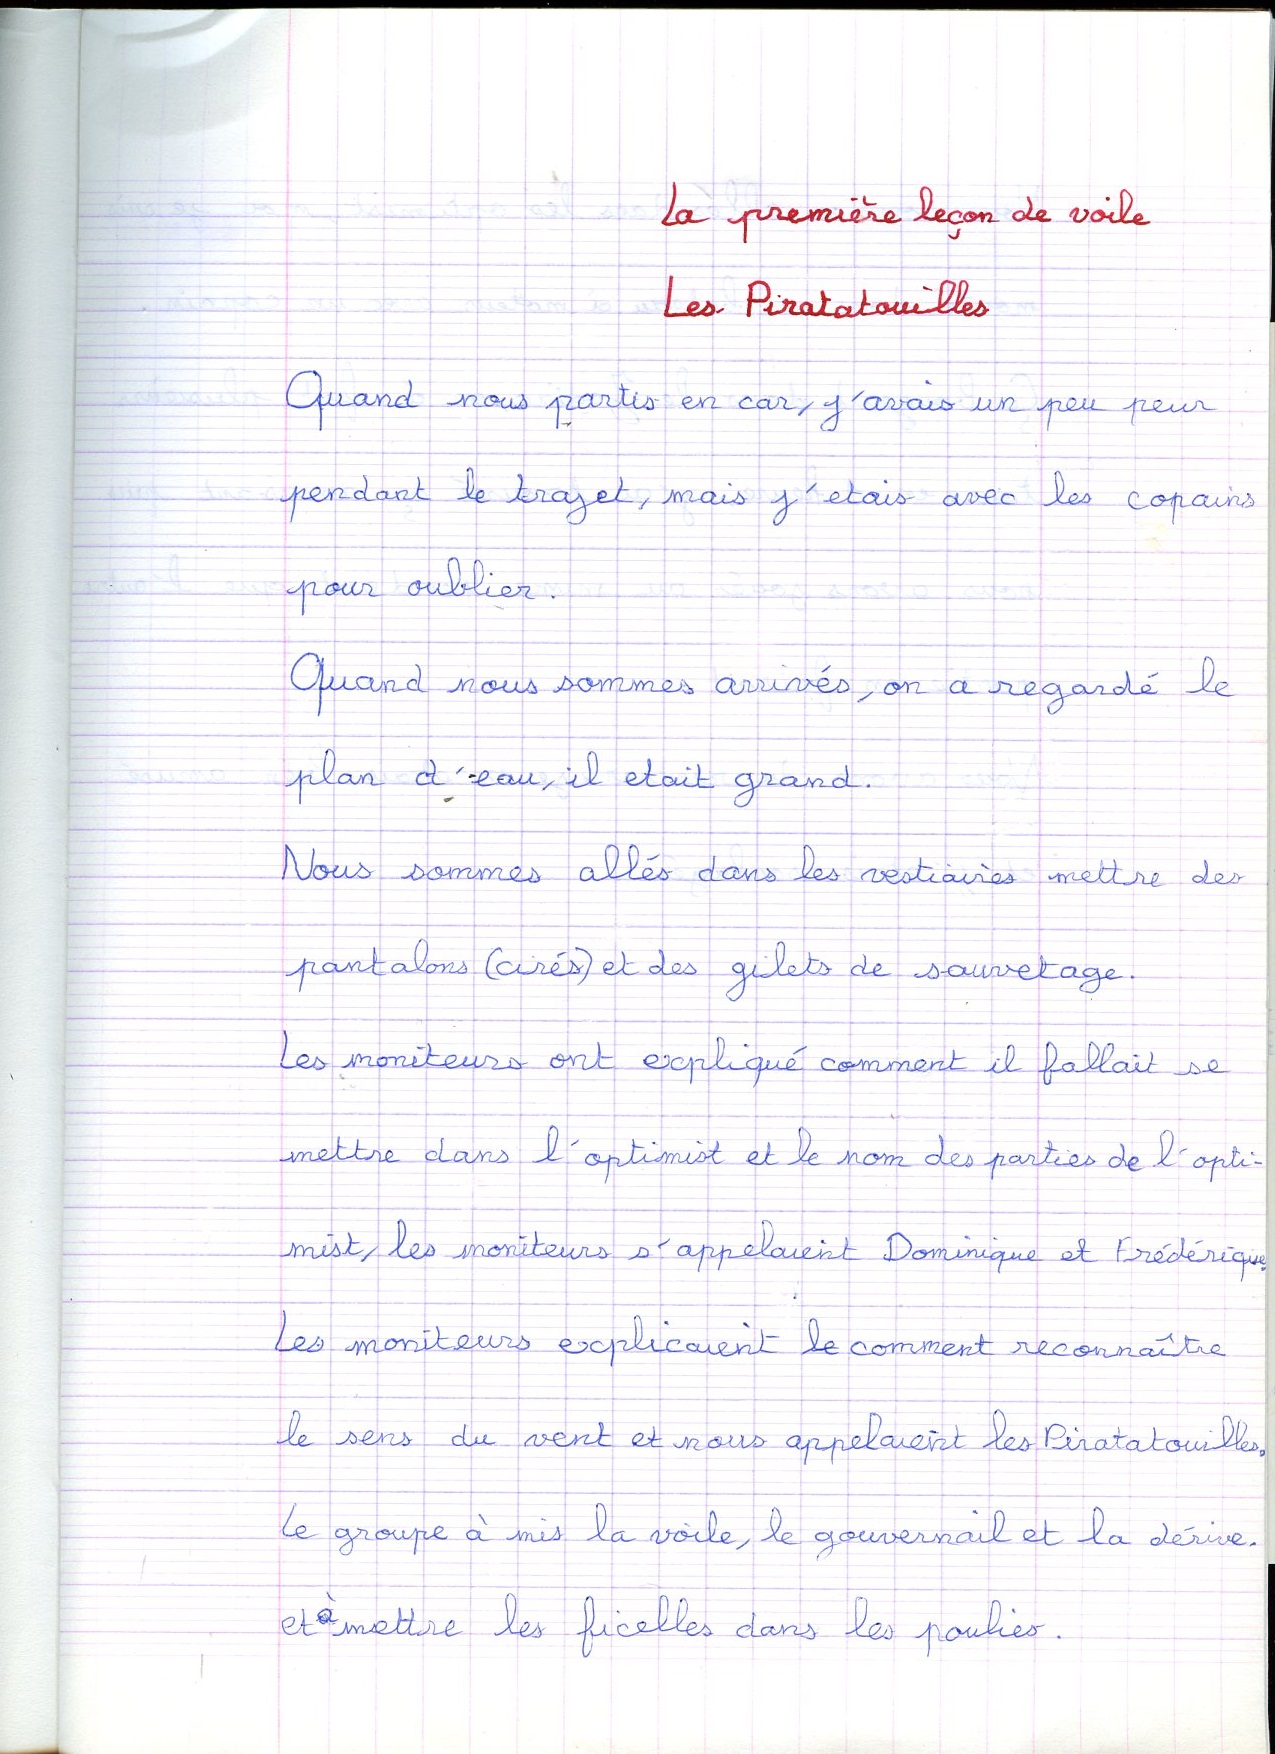 La première leçon de voile
Les Piratatouilles
Quand nous partis en car, j'avais un peu peur
pendant le trajet, mais j'etais avec les copains
pour oublier.
Quand nous sommes arrivés, on a regardé le
plan d'eau, il etait grand.
Nous sommes allés dans les vestiaires mettre des
pantalons (cirés) et des gilets de sauvetage.
Les moniteurs ont expliqué comment il fallait se
mettre dans l'optimist et le nom des parties de l'opti-
mist, les moniteurs s'appelaient Dominique et Frédérique.
Les moniteurs explicaient le comment reconnaître
le sens du vent et nous appelaient les Piratatouilles.
Le groupe à mis la voile, le gouvernail et la dérive.
et à mettre les ficelles dans les poulies.